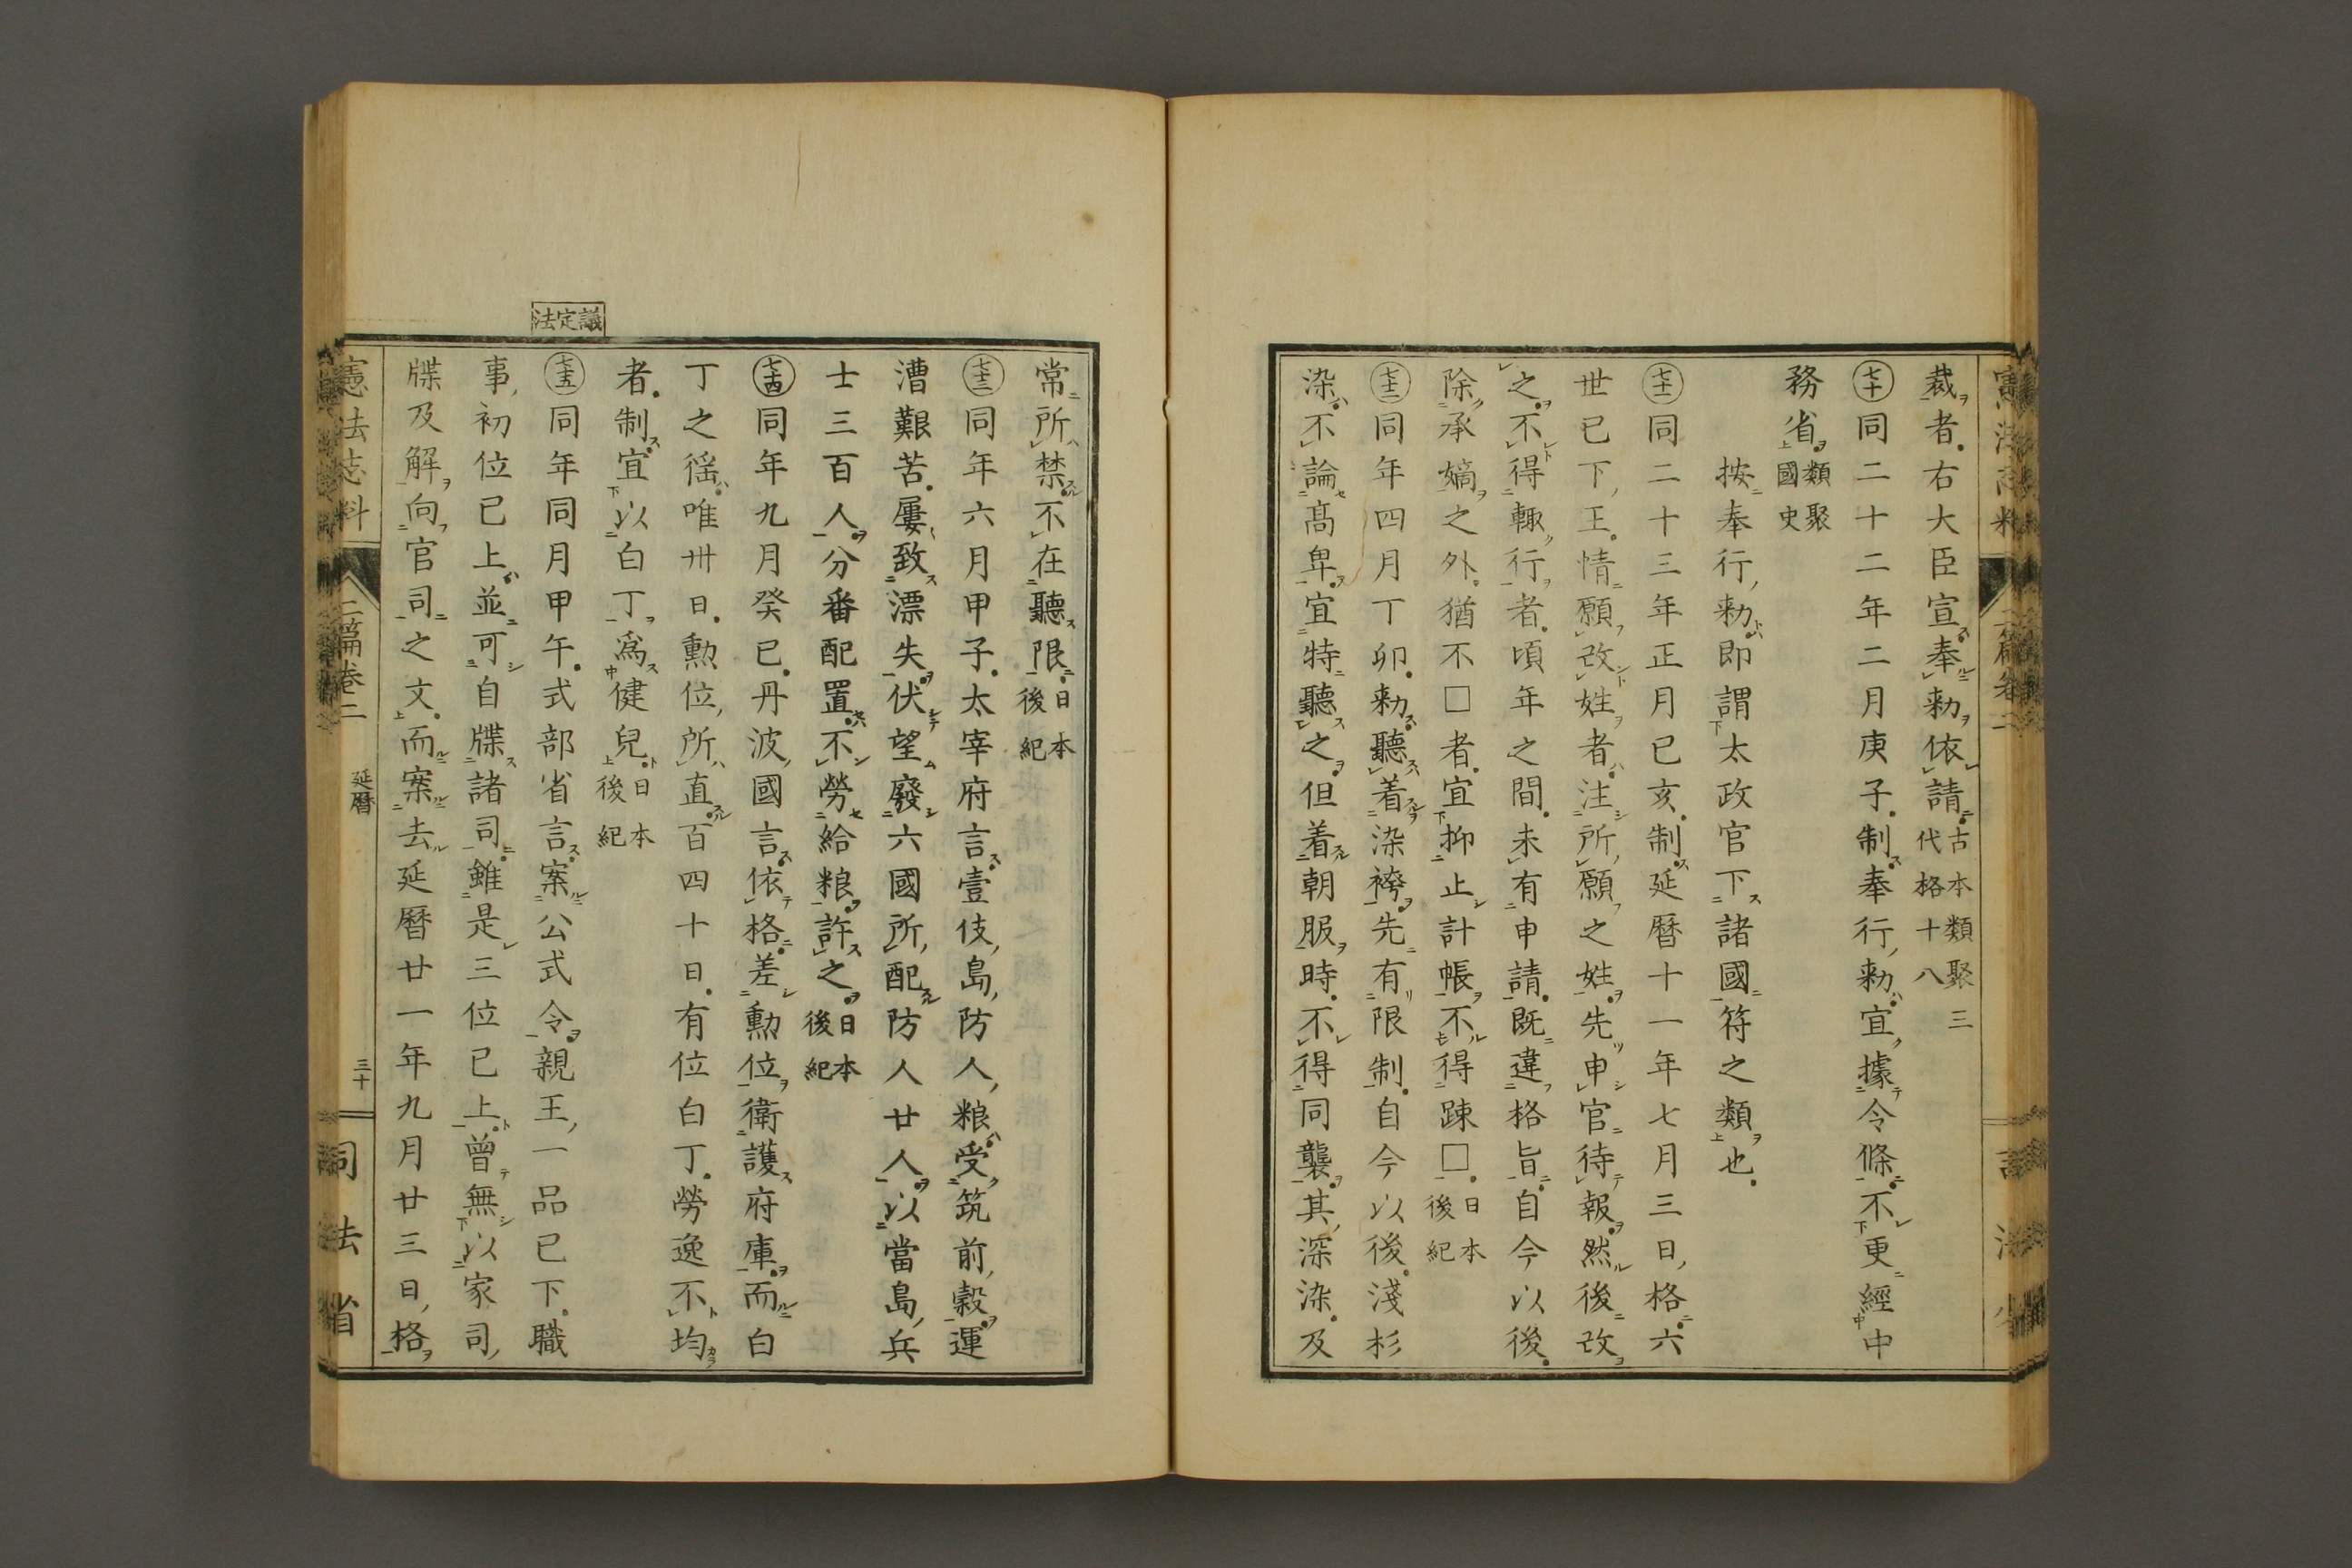 裁者。右大臣宣奉勅依請。古本類聚三代格十八
七十 同二十二年二月庚子。制奉行勅宜據令條。不更經中
務省。類聚國史
按奉行勅即謂太政官下諸國符之類也。
七十一 同二十三年正月已亥。制延曆十一年七月三日格。六
世已下王。情願改姓者。注所願之姓。先申官待報。然後改
之。不得輙行者。頃年之間。未有申請。既違格旨。自今以後。
除承嫡之外。猶不□者。宜抑止計帳。不得踈□。日本後紀
七十二 同年四月丁卯。勅聽着染袴。先有限制。自今以後。淺杉
染。不論髙卑。宜特聽之。但着朝服時。不得同襲。其深染。及
常所禁不在聽限。日本後紀
七十三 同年六月甲子。太宰府言。壹伎島防人粮。受筑前穀。運
漕艱苦。屢致漂失。伏望廢六國所配防人廿人。以當島兵
士三百人。分番配置。不勞給粮。許之。日本後紀
議定法
七十四 同年九月癸巳。丹波國言。依格。差勳位。衛護府庫。而白
丁之徭。唯卅日。勳位所直。百四十日。有位白丁。勞逸不均
者。制。宜以白丁爲健兒。日本後紀
七十五 同年同月甲午。式部省言。案公式令。親王一品已下。職
事初位已上。並可自牒諸司。雖是三位已上。曾無以家司
牒及解向官司之文。而案去延曆廿一年九月廿三日格。
憲法志料 二篇卷二 延曆 三十 司法省